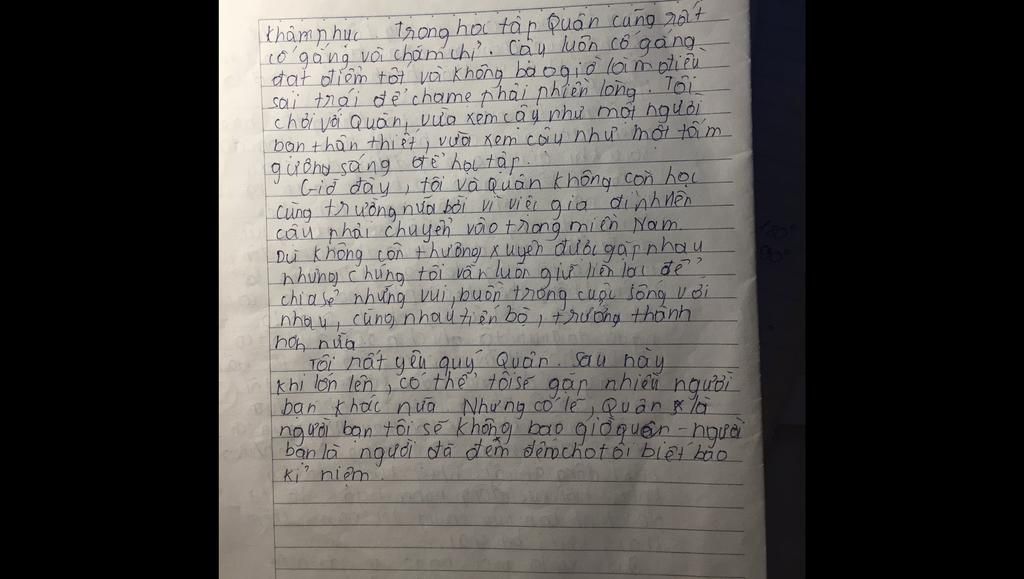 khâm phục. Trong học tập Quân cũng rất
cố gắng và chăm chỉ. Cậu luôn cố gắng
đạt điểm tốt và không bao giờ làm điều
sai trái để cha mẹ phải phiền lòng. Tôi
chơi với Quân, vừa xem cậu như một người
bạn thân thiết, vừa xem cậu như một tấm
gương sáng để học tập.
Giờ đây, tôi và Quân không còn học
cùng trường nữa bởi vì việc gia đình nên
cậu phải chuyển vào trong miền Nam.
Dù không còn thường xuyên được gặp nhau
nhưng chúng tôi vẫn luôn giữ liên lạc để
chia sẻ những vui, buồn trong cuộc sống với
nhau, cùng nhau tiến bộ, trưởng thành
hơn nữa.
Tôi rất yêu quý Quân. Sau này
khi lớn lên, có thể tôi sẽ gặp nhiều người
bạn khác nữa. Nhưng có lẽ, Quân là
người bạn tôi sẽ không bao giờ quên - người
bạn là người đã đem đến cho tôi biết bao
kỉ niệm.